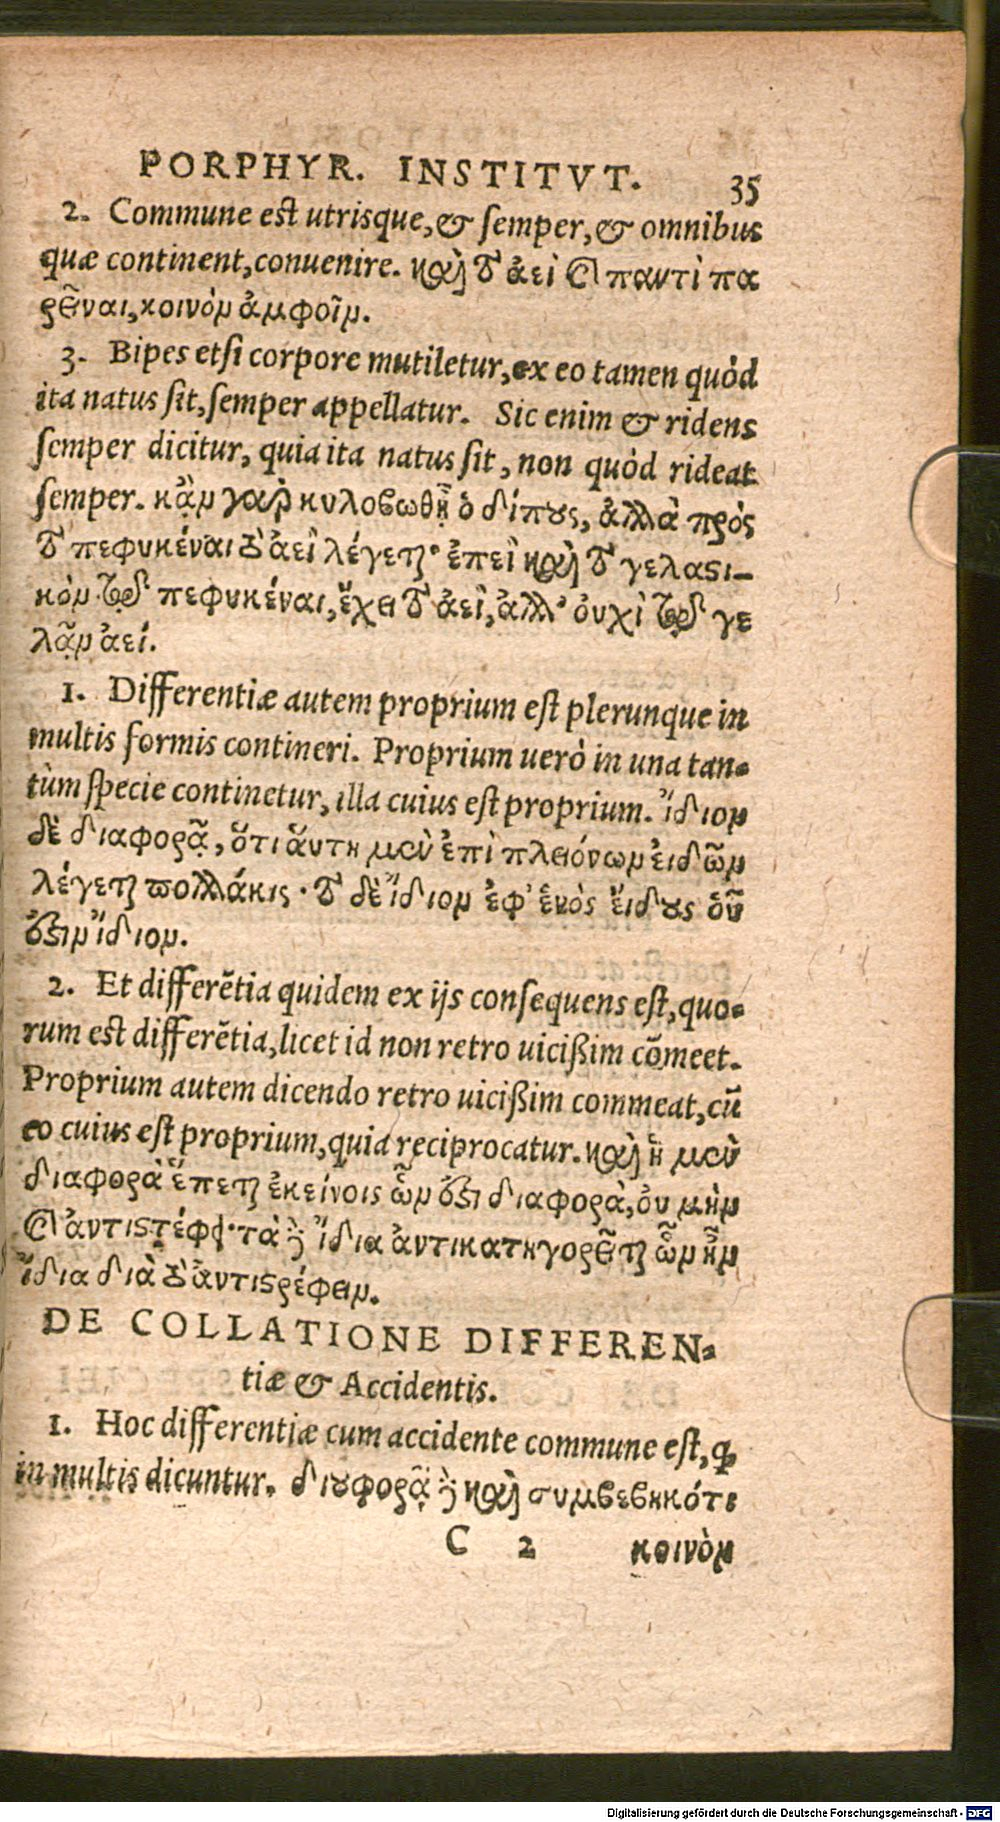 PORPHYR. INSTITVT. 35
2. Commune est utrisque, & semper, & omnibus
quæ continent, conuenire. καὶ τὸ ἀεὶ καὶ παντὶ πα
ρεῖναι, κοινὸν ἀμφοῖν.
3. Bipes etsi corpore mutiletur, ex eo tamen quòd
ita natus sit, semper appellatur. Sic enim & ridens
semper dicitur, quia ita natus sit, non quòd rideat
semper. κᾂν γαρ κυλοβωθῇ ὁ δίπους, ἀλλὰ πρὸς
τὸ πεφυκέναι τὸ ἀεὶ λέγεται· ἐπεὶ καὶ τὸ γελαστι-
κὸν τῷ πεφυκέναι, ἔχει τὸ ἀεὶ, ἀλλ' οὐχὶ τῷ γε
λᾷν ἀεί.
1. Differentiæ autem proprium est plerunque in
multis formis contineri. Proprium uerò in una tan-
tùm specie continetur, illa cuius est proprium. ἴδιον
δὲ διαφορᾷ, ὅτι ἅυτη μὲν ἐπὶ πλειόνων ἐιδῶν
λέγεται πολλάκις· τὸ δὲ ἴδιον ἐφ' ἑνὸς ἔιδους ὁῦ
ἐστιν ἴδιον.
2. Et differētia quidem ex ijs consequens est, quo-
rum est differētia, licet id non retro uicißim cōmeet.
Proprium autem dicendo retro uicißim commeat, cū
eo cuius est proprium, quia reciprocatur. καὶ ἡ μὲν
διαφορὰ ἕπεται ἐκείνοις ὧν ἐστι διαφορὰ, ὀυ μὴν
καὶ ἀντιστρέφει· τὰ δὲ ἴδια ἀντικατηγορεῖται ὧν ἦν
ἴδια διὰ τὸ ἀντιστρέφειν.
DE COLLATIONE DIFFEREN-
tiæ & Accidentis.
1. Hoc differentiæ cum accidente commune est, ꝙ
in multis dicuntur. διουφορᾷ δὲ καὶ συμβεβηκότι
C 2 κοινὸν